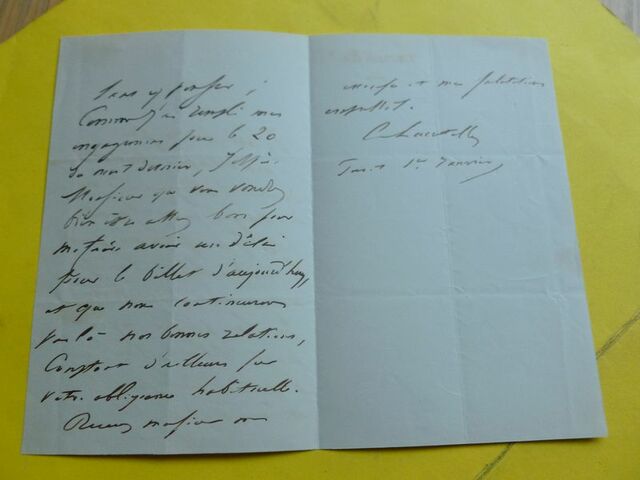 sans y penser ;
Comme j'ai rempli mes
engagemens pour le 20
du mois dernier, j'espère
Monsieur que vous voudrez
bien être assez bon pour
me faire avoir un délai
pour le billet d'aujourd'huy,
et que nous continuerons
par là nos bonnes relations,
Comptant d'ailleurs sur
votre obligeance habituelle.
Recevez monsieur mes
excuses et mes salutations
empressées.
1er Janvier